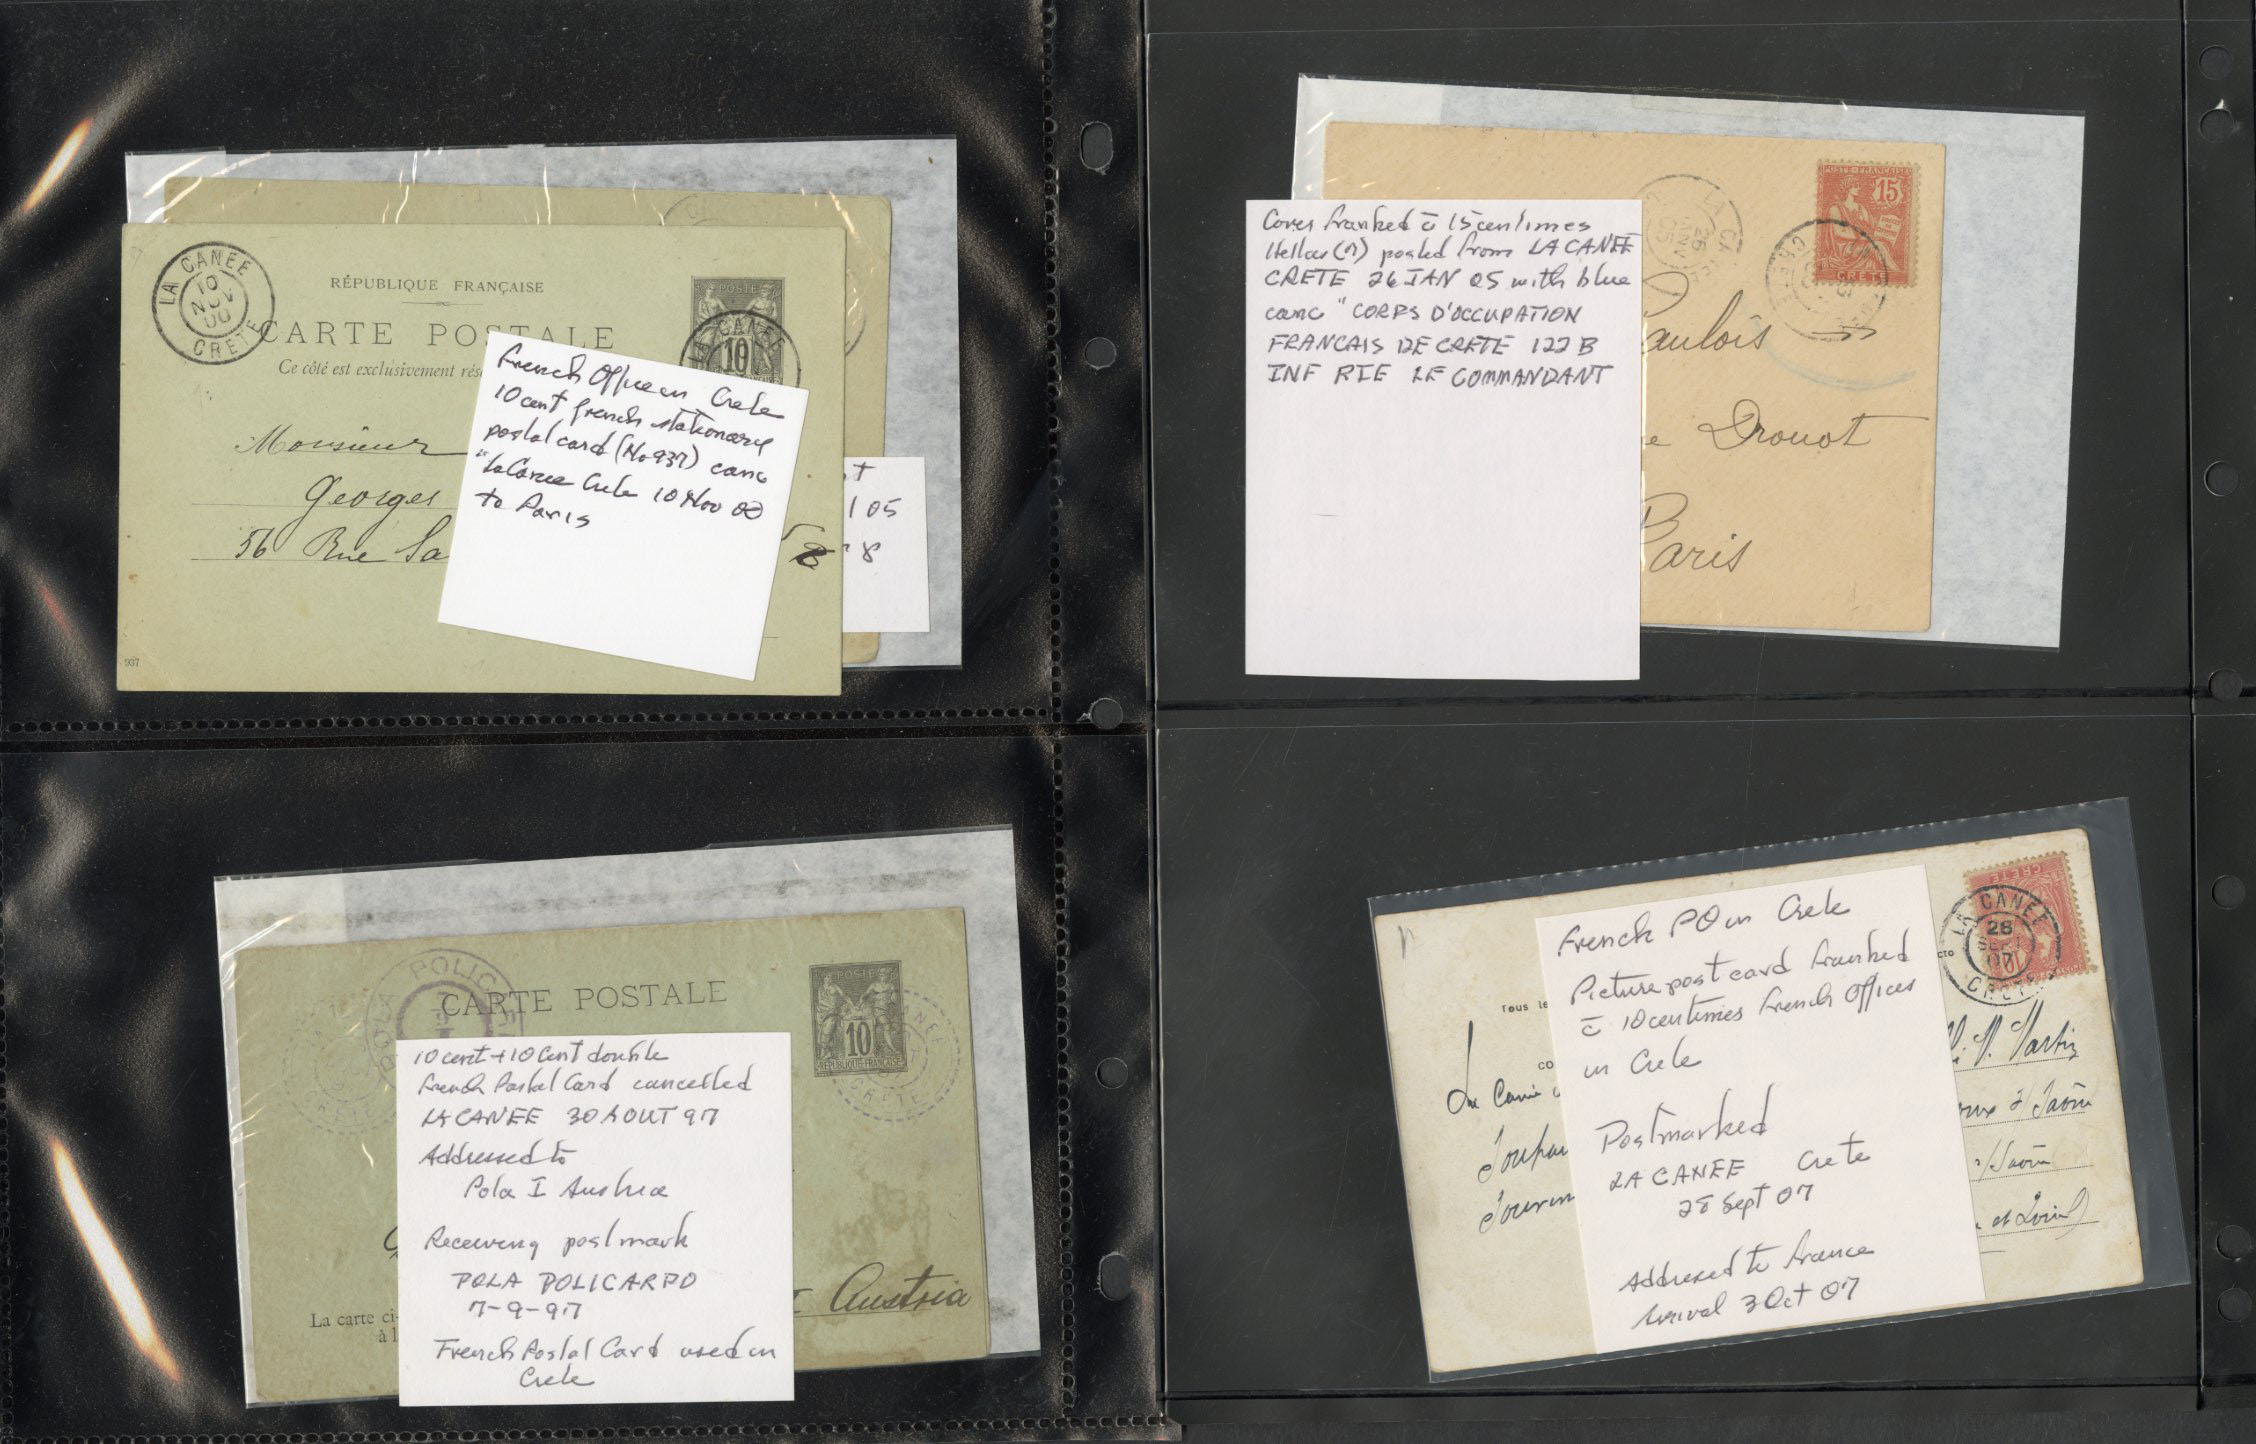 LA CANEE
10
NOV
00
CRETE
RÉPUBLIQUE FRANÇAISE
CARTE POSTALE
Ce côté est exclusivement rés
POSTE
10
LA CANEE
Monsieur
Georges
56 Rue Sa
937
French Office in Crete
10 cent french stationary
postal card (No 937) canc
"La Canee Crete 10 Nov 00
to Paris
t
1 05
8
Cover franked c̄ 15 centimes
Hellas (?) posted from LA CANEE
CRETE 26 JAN 05 with blue
canc "CORPS D'OCCUPATION
FRANCAIS DE CRETE 122 B
INF RIE LE COMMANDANT
POSTE FRANÇAISE
15
CRETE
LA CANEE
26
JANV
05
aulois
e Drouot
Paris
POLA POLICAR
CARTE POSTALE
POSTE
10
RÉPUBLIQUE FRANÇAISE
CANEE
CRETE
CRETE
10 cent + 10 cent double
French Postal Card cancelled
LA CANEE 30 AOUT 97
Addressed to
Pola I Austria
Receiving postmark
POLA POLICARPO
7-9-97
French Postal Card used in
Crete
La carte ci-
à l
Austria
CRETE
10
LA CANEE
28
SEPT
07
CRETE
Tous le
CO
CTO
La Canée
French PO in Crete
Picture post card franked
c̄ 10 centimes French Offices
in Crete
Postmarked
LA CANEE Crete
28 Sept 07
Addressed to France
Arrival 3 Oct 07
Martin
s/Saône
et Loire